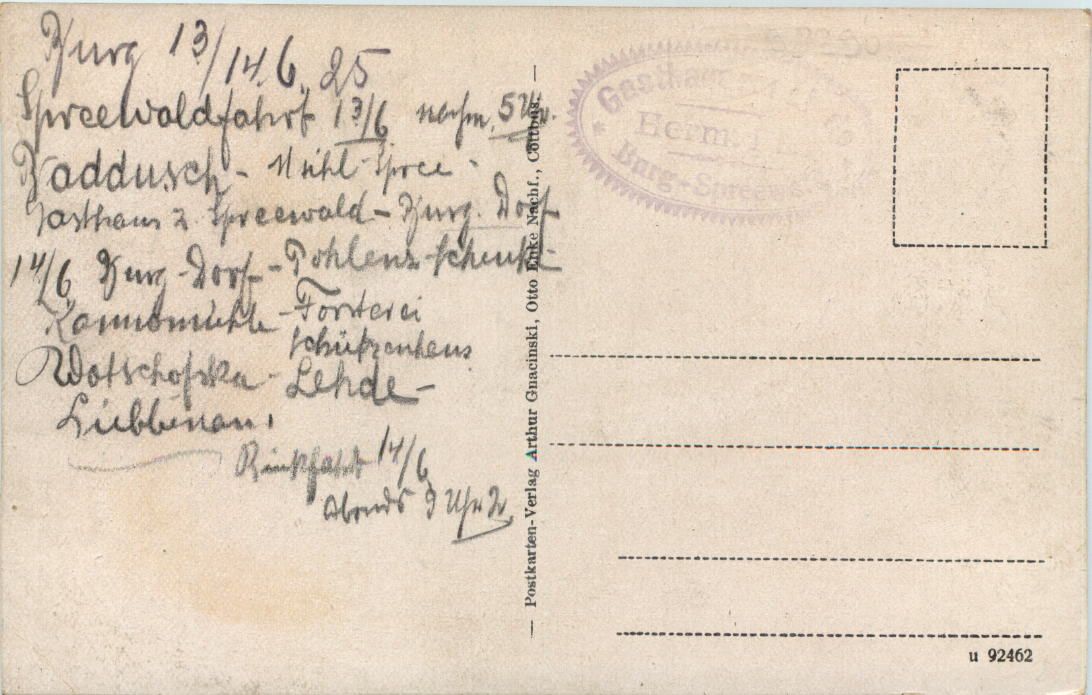 Burg 13/14.6.25
Spreewaldfahrt 13/6 nachm. 5 Uhr.
Raddusch - Mühl-Spree -
Gasthaus z. Spreewald - Burg-Dorf
14/6 Burg-Dorf - Pohlenz-schenke -
Kannomühle - Forsterei
schützenhaus
Wotschofska - Lehde -
Lübbenau.
Rückfahrt 14/6
Abends 9 Uhr
— Postkarten-Verlag Arthur Gnacinski, Otto Enke Nachf., Cottbus. —
Gasthaus
Herm.
Burg-Spreew
u 92462